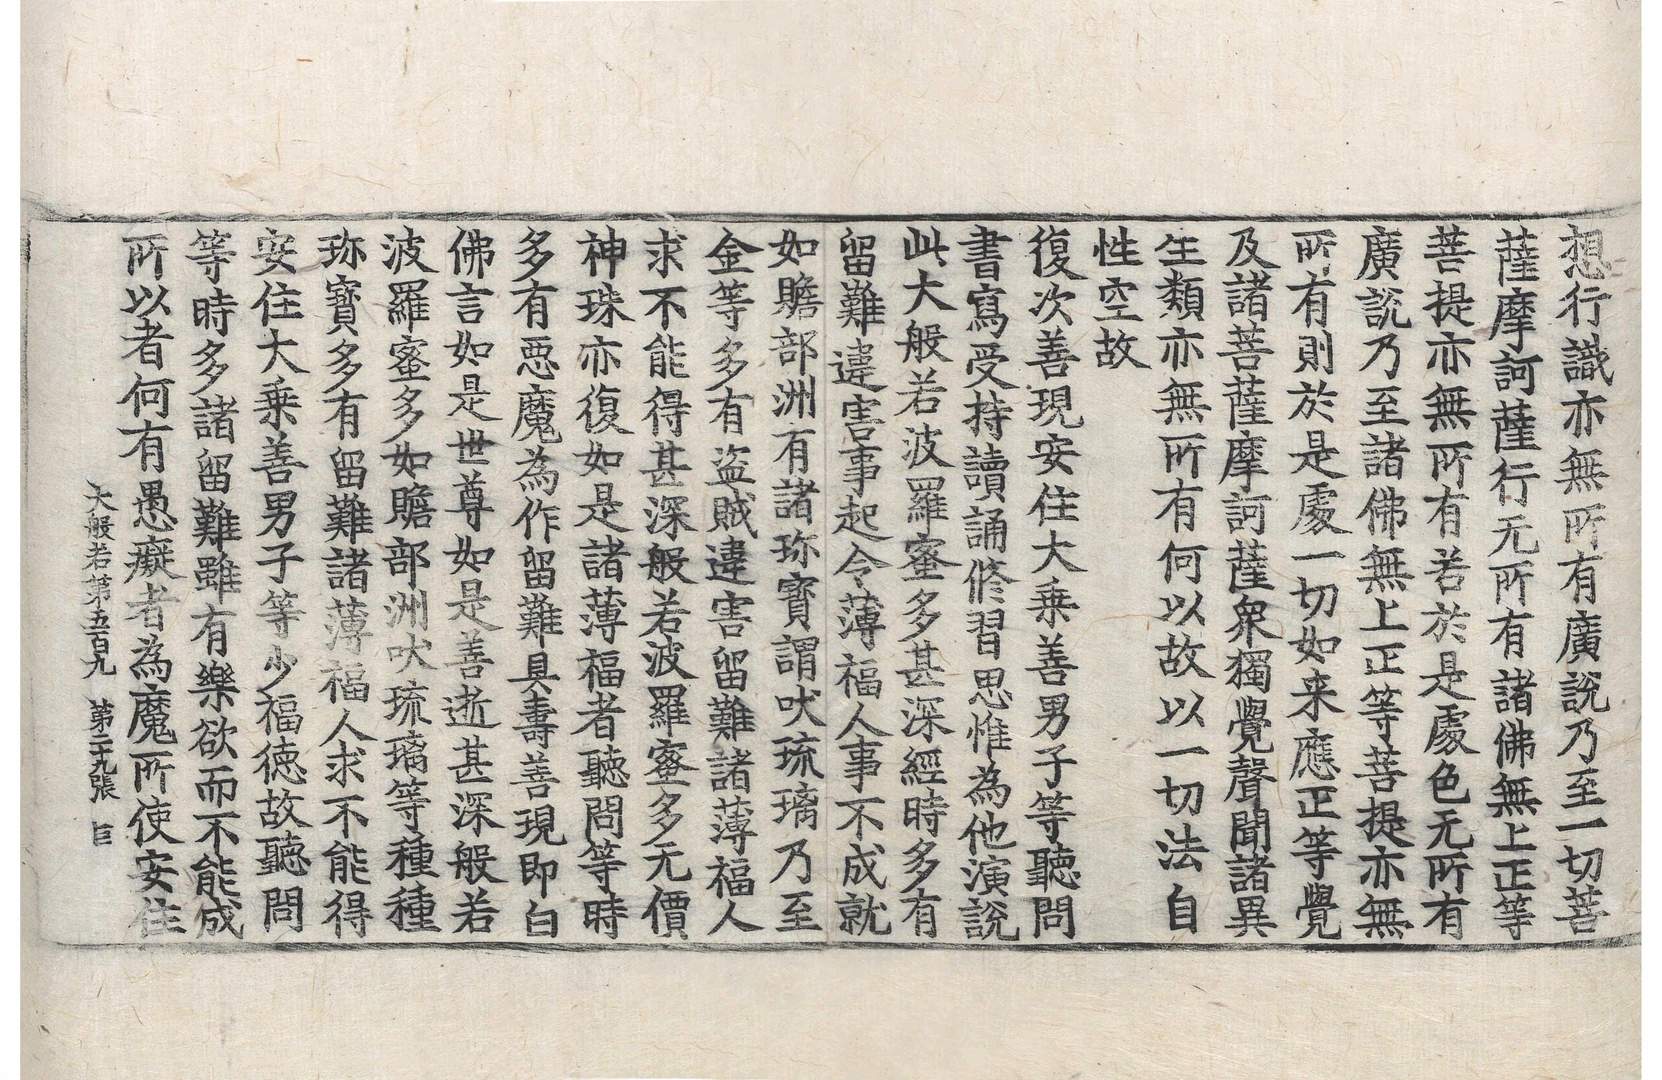 想行識亦無所有廣說乃至一切菩
薩摩訶薩行无所有諸佛無上正等
菩提亦無所有若於是處色无所有
廣說乃至諸佛無上正等菩提亦無
所有則於是處一切如来應正等覺
及諸菩薩摩訶薩衆獨覺聲聞諸異
生類亦無所有何以故以一切法自
性空故
復次善現安住大乗善男子等聽問
書寫受持讀誦修習思惟為他演說
此大般若波羅蜜多甚深經時多有
留難違害事起令薄福人事不成就
如贍部洲有諸珎寶謂吠琉璃乃至
金等多有盜賊違害留難諸薄福人
求不能得甚深般若波羅蜜多无價
神珠亦復如是諸薄福者聽問等時
多有惡魔為作留難具壽善現即白
佛言如是世尊如是善逝甚深般若
波羅蜜多如贍部洲吠琉璃等種種
珎寶多有留難諸薄福人求不能得
安住大乗善男子等少福徳故聽問
等時多諸留難雖有樂欲而不能成
所以者何有愚癡者為魔所使安住
大般若第五百九 第二十九張 巨